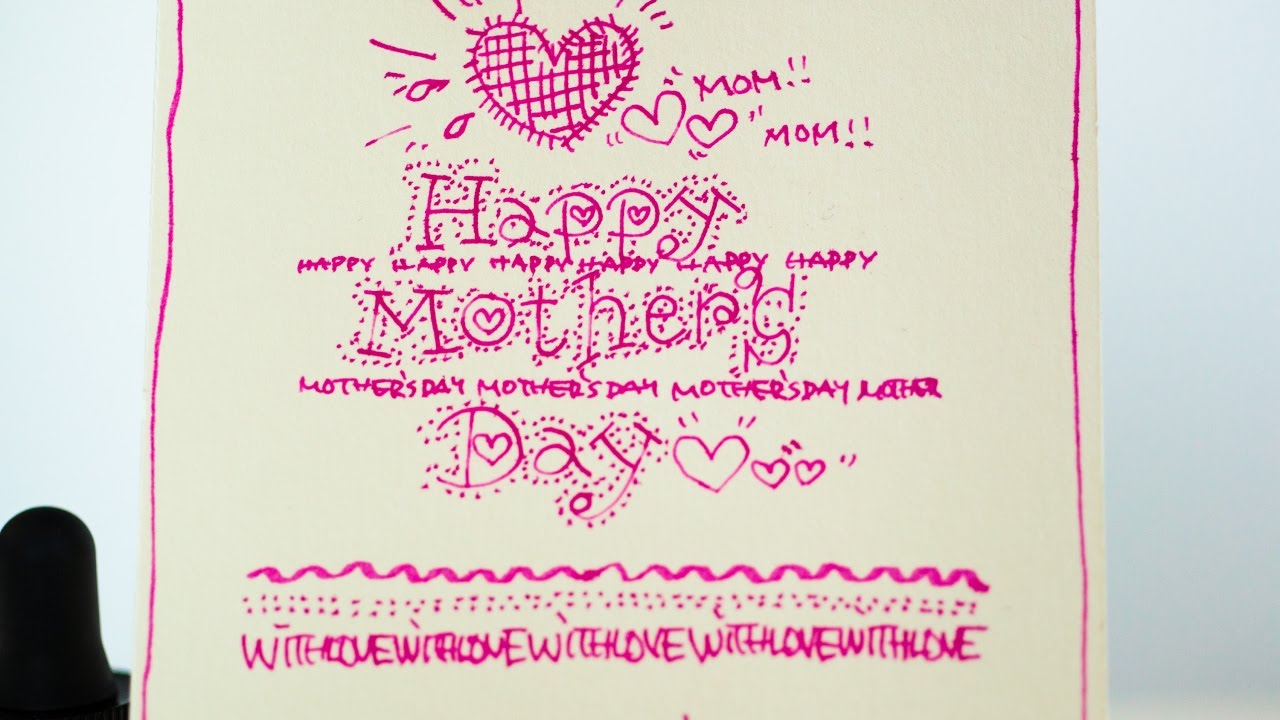 MOM!!
MOM!!
Happy
HAPPY HAPPY HAPPY HAPPY HAPPY HAPPY
Mother's
MOTHER'S DAY MOTHER'S DAY MOTHER'S DAY MOTHER
Day
WITH LOVE WITH LOVE WITH LOVE WITH LOVE WITH LOVE